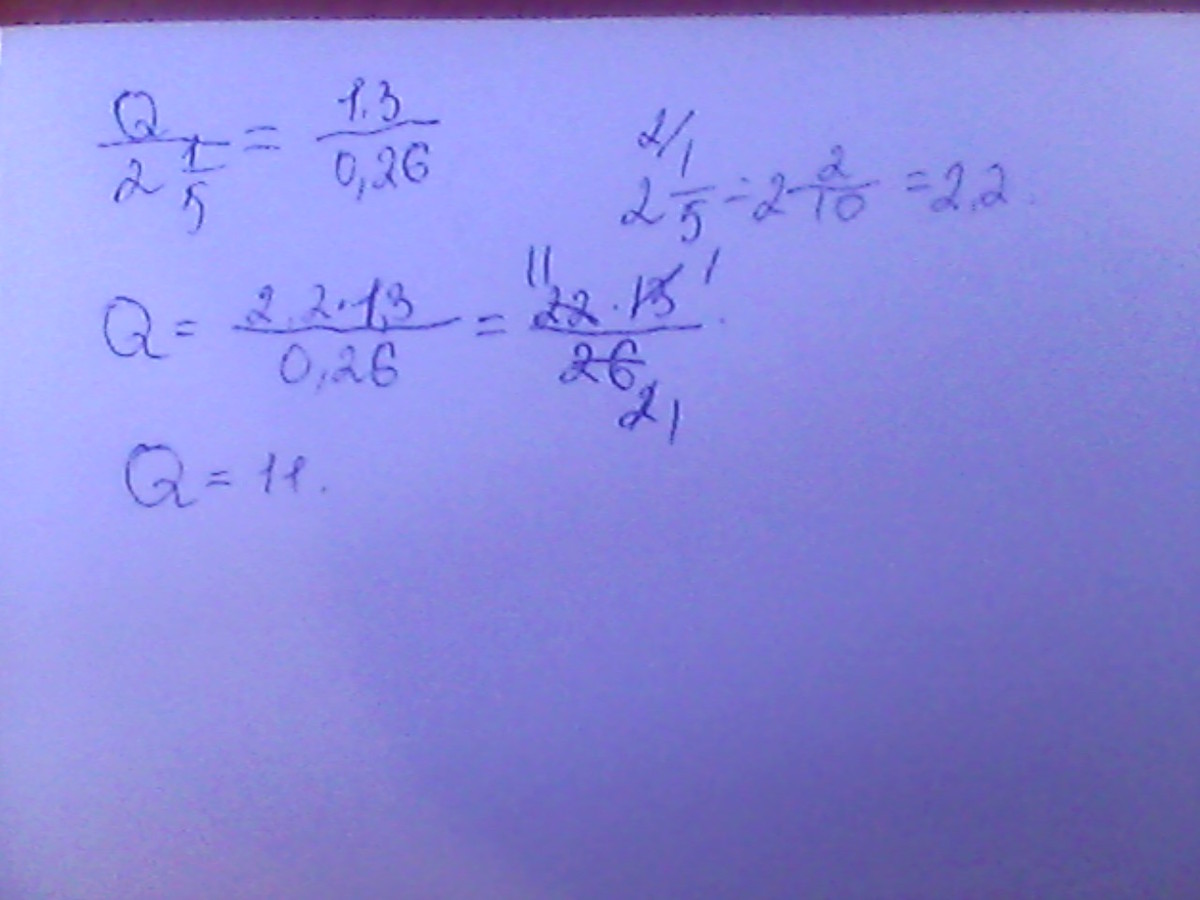 Q / 2 1/5 = 1,3 / 0,26
2/ 2 1/5 = 2 2/10 = 2,2.
Q = 2,2·1,3 / 0,26 = 11 22·13 1 / 26 2 1.
Q = 11.